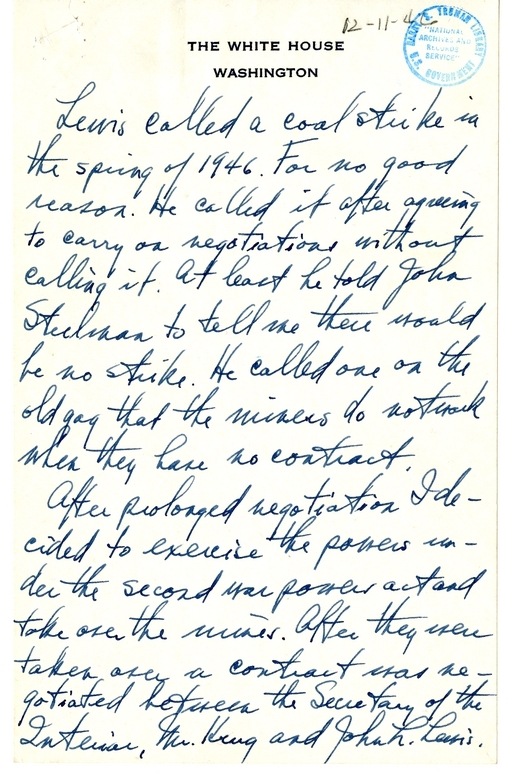 12-11-46
HARRY S. TRUMAN LIBRARY
"NATIONAL
ARCHIVES AND
RECORDS
SERVICE"
U.S. GOVERNMENT
THE WHITE HOUSE
WASHINGTON
Lewis called a coal strike in
the spring of 1946. For no good
reason. He called it after agreeing
to carry on negotiations without
calling it. At least he told John
Steelman to tell me there would
be no strike. He called one on the
old gag that the miners do not work
when they have no contract.
After prolonged negotiation I de-
cided to exercise the powers un-
der the second war powers act and
take over the mines. After they were
taken over a contract was ne-
gotiated between the Secretary of the
Interior, Mr. Krug and John L. Lewis.